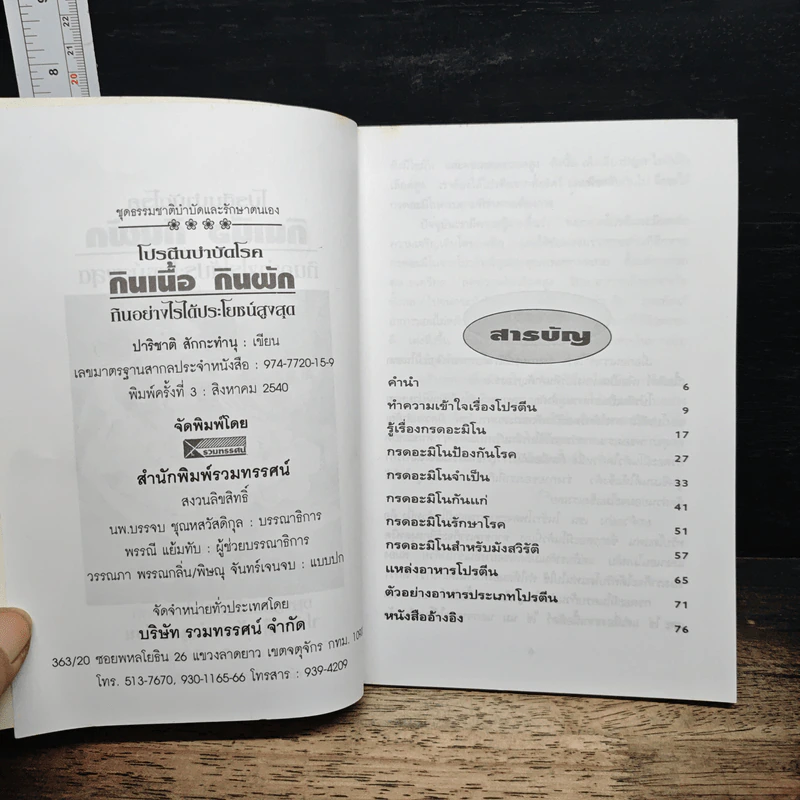 22
21
20
8
ชุดธรรมชาติบำบัดและรักษาตนเอง
โปรตีนบำบัดโรค
กินเนื้อ กินผัก
กินอย่างไรได้ประโยชน์สูงสุด
ปาริชาติ สักกะทำนุ : เขียน
เลขมาตรฐานสากลประจำหนังสือ : 974-7720-15-9
พิมพ์ครั้งที่ 3 : สิงหาคม 2540
จัดพิมพ์โดย
รวมทรรศน์
สำนักพิมพ์รวมทรรศน์
สงวนลิขสิทธิ์
นพ.บรรจบ ชุณหสวัสดิกุล : บรรณาธิการ
พรรณี แย้มทับ : ผู้ช่วยบรรณาธิการ
วรรณภา พรรณกลิ่น/พิษณุ จันทร์เจนจบ : แบบปก
จัดจำหน่ายทั่วประเทศโดย
บริษัท รวมทรรศน์ จำกัด
363/20 ซอยพหลโยธิน 26 แขวงลาดยาว เขตจตุจักร กทม.
โทร. 513-7670, 930-1165-66 โทรสาร : 939-4209
สารบัญ
คำนำ 6
ทำความเข้าใจเรื่องโปรตีน 9
รู้เรื่องกรดอะมิโน 17
กรดอะมิโนป้องกันโรค 27
กรดอะมิโนจำเป็น 33
กรดอะมิโนกันแก่ 41
กรดอะมิโนรักษาโรค 51
กรดอะมิโนสำหรับมังสวิรัติ 57
แหล่งอาหารโปรตีน 65
ตัวอย่างอาหารประเภทโปรตีน 71
หนังสืออ้างอิง 76